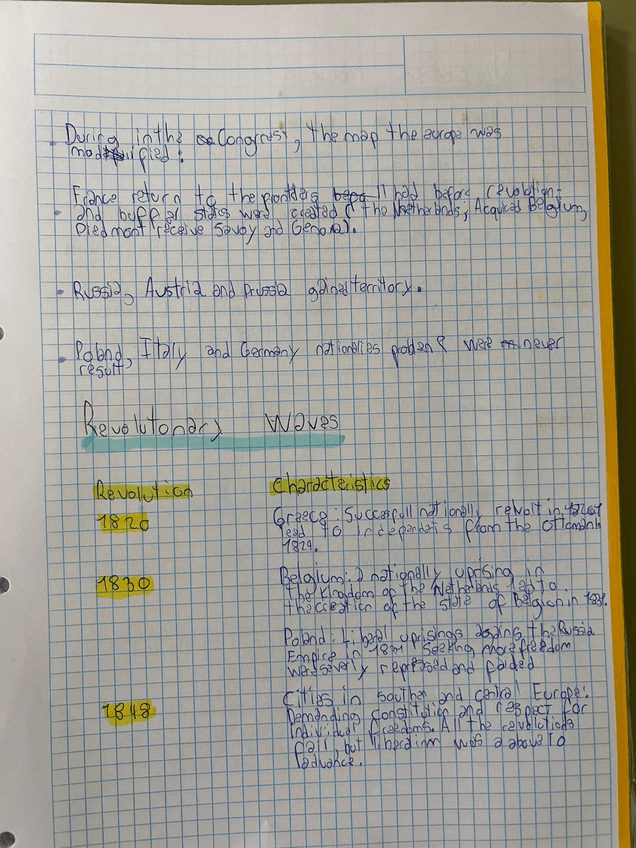 - During in the Congress, the map the europe was
modified:
France return to the frontiers it had before revolution;
- and buffer states word created ( the Netherlands; Acquired Belgium,
Piedmont receive Savoy and Genova).
- Russia, Austria and Prussia gained territory.
- Poland, Italy and Germany nationalies problem were never
result,
Revolutonary Waves
Revolution Characteristics
1820 Greece: Successfull nationally revolt in
lead to independets from the Ottoman
1829.
1830 Belgium: a nationally uprising in
the Kingdom of the Netherlands led to
the creation of the state of Belgion in 1831.
Poland: Liberal uprisings against the Russia
Empire in 1831 seeking more freedom
was severly repressed and failed
1848 Cities in souther and central Europe:
Demanding constitution and respect for
individual freedoms. All the revolutions
fail, but liberalinm was a above to
advance.